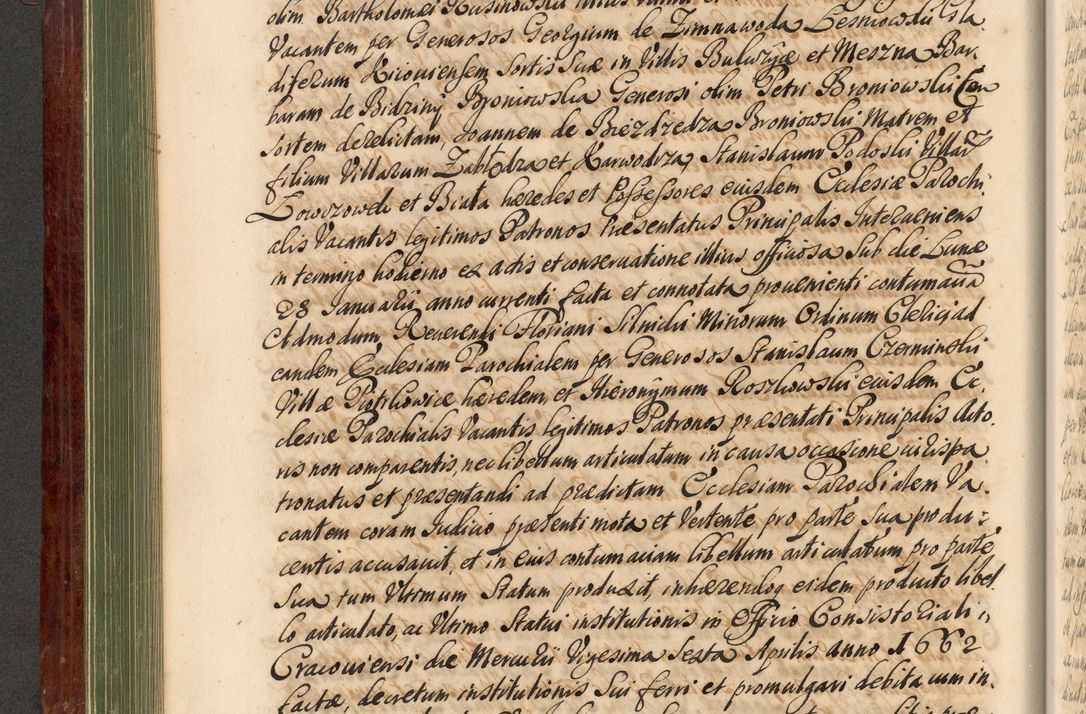 olim Bartholomei Rusinowski illius
Vacantem per Generosos Georgium de Zimnawoda Lesniowski Gla
diferum Kiiouiensem Sortis Suæ in Villis Bulwzyce et Meszna Bar
baram de Bidziny Broniowska Generosi olim Petri Broniowski Con
sortem derelictam, Joannem de Biezdziedza Broniowski Matrem et
filium Villarum Zablędza et Karwodrza Stanislaum Podoski Villar
Lowczowek et Biała hæredes et Possessores eiusdem Ecclesiæ Parochi
alis Vacantis legitimos Patronos Præsentatus Principalis Interueniens
in termino hodierno ex actis et conseruatione illius officiosa Sub die Lunæ
28 Januarii anno currenti facta et connotata prouenienti contumacia
Admodum Reuerendi Floriani Silnicki Minorum Ordinum Clerici, ad
eandem Ecclesiam Parochialem per Generosos Stanislaum Czerminski
Villæ Piotrkowice hæredem, et Hieronymum Roszkowski eiusdem Ec
clesiæ Parochialis Vacantis legitimos Patronos præsentati Principalis Acto
ris non comparentis, nec libellum articulatum in causa occasione iurispa
tronatus et præsentandi ad prædictam Ecclesiam Parochialem Va
cantem coram Judicio præsenti mota et Vertente pro parte Sua produ=
centis accusauit, et in eius contumaciam libellum articulatum pro parte
Sua tum Vltimum Statum produxit, inhærendoq eidem producto libel
lo articulato, ac Vltimo Statui institutionis in Officio Consistoriali
Cracouiensi die Mercurii Vigesima Sexta Aprilis anno 1662
factæ, decretum institutionis Sui ferri et promulgari debita cum in